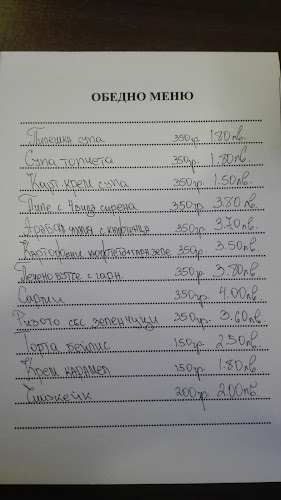 ОБЕДНО МЕНЮ
Пилешка супа 350гр. 1.80лв.
Супа топчета 350гр. 1.80лв.
Карт. крем супа 350гр. 1.50лв.
Пиле с 4 вида сирена 350гр. 3.80лв.
Арабска с кюфтенца 350гр. 3.70лв.
Картофени кюфтета 350гр. 3.50лв.
бутче с гарн. 350гр. 3.80лв.
Сарми 350гр. 4.00лв.
Ризото със зеленчуци 350гр. 3.60лв.
Торта бейлис 150гр. 2.50лв.
Крем карамел 150гр. 1.80лв.
Чийзкейк 200гр 2.00лв.